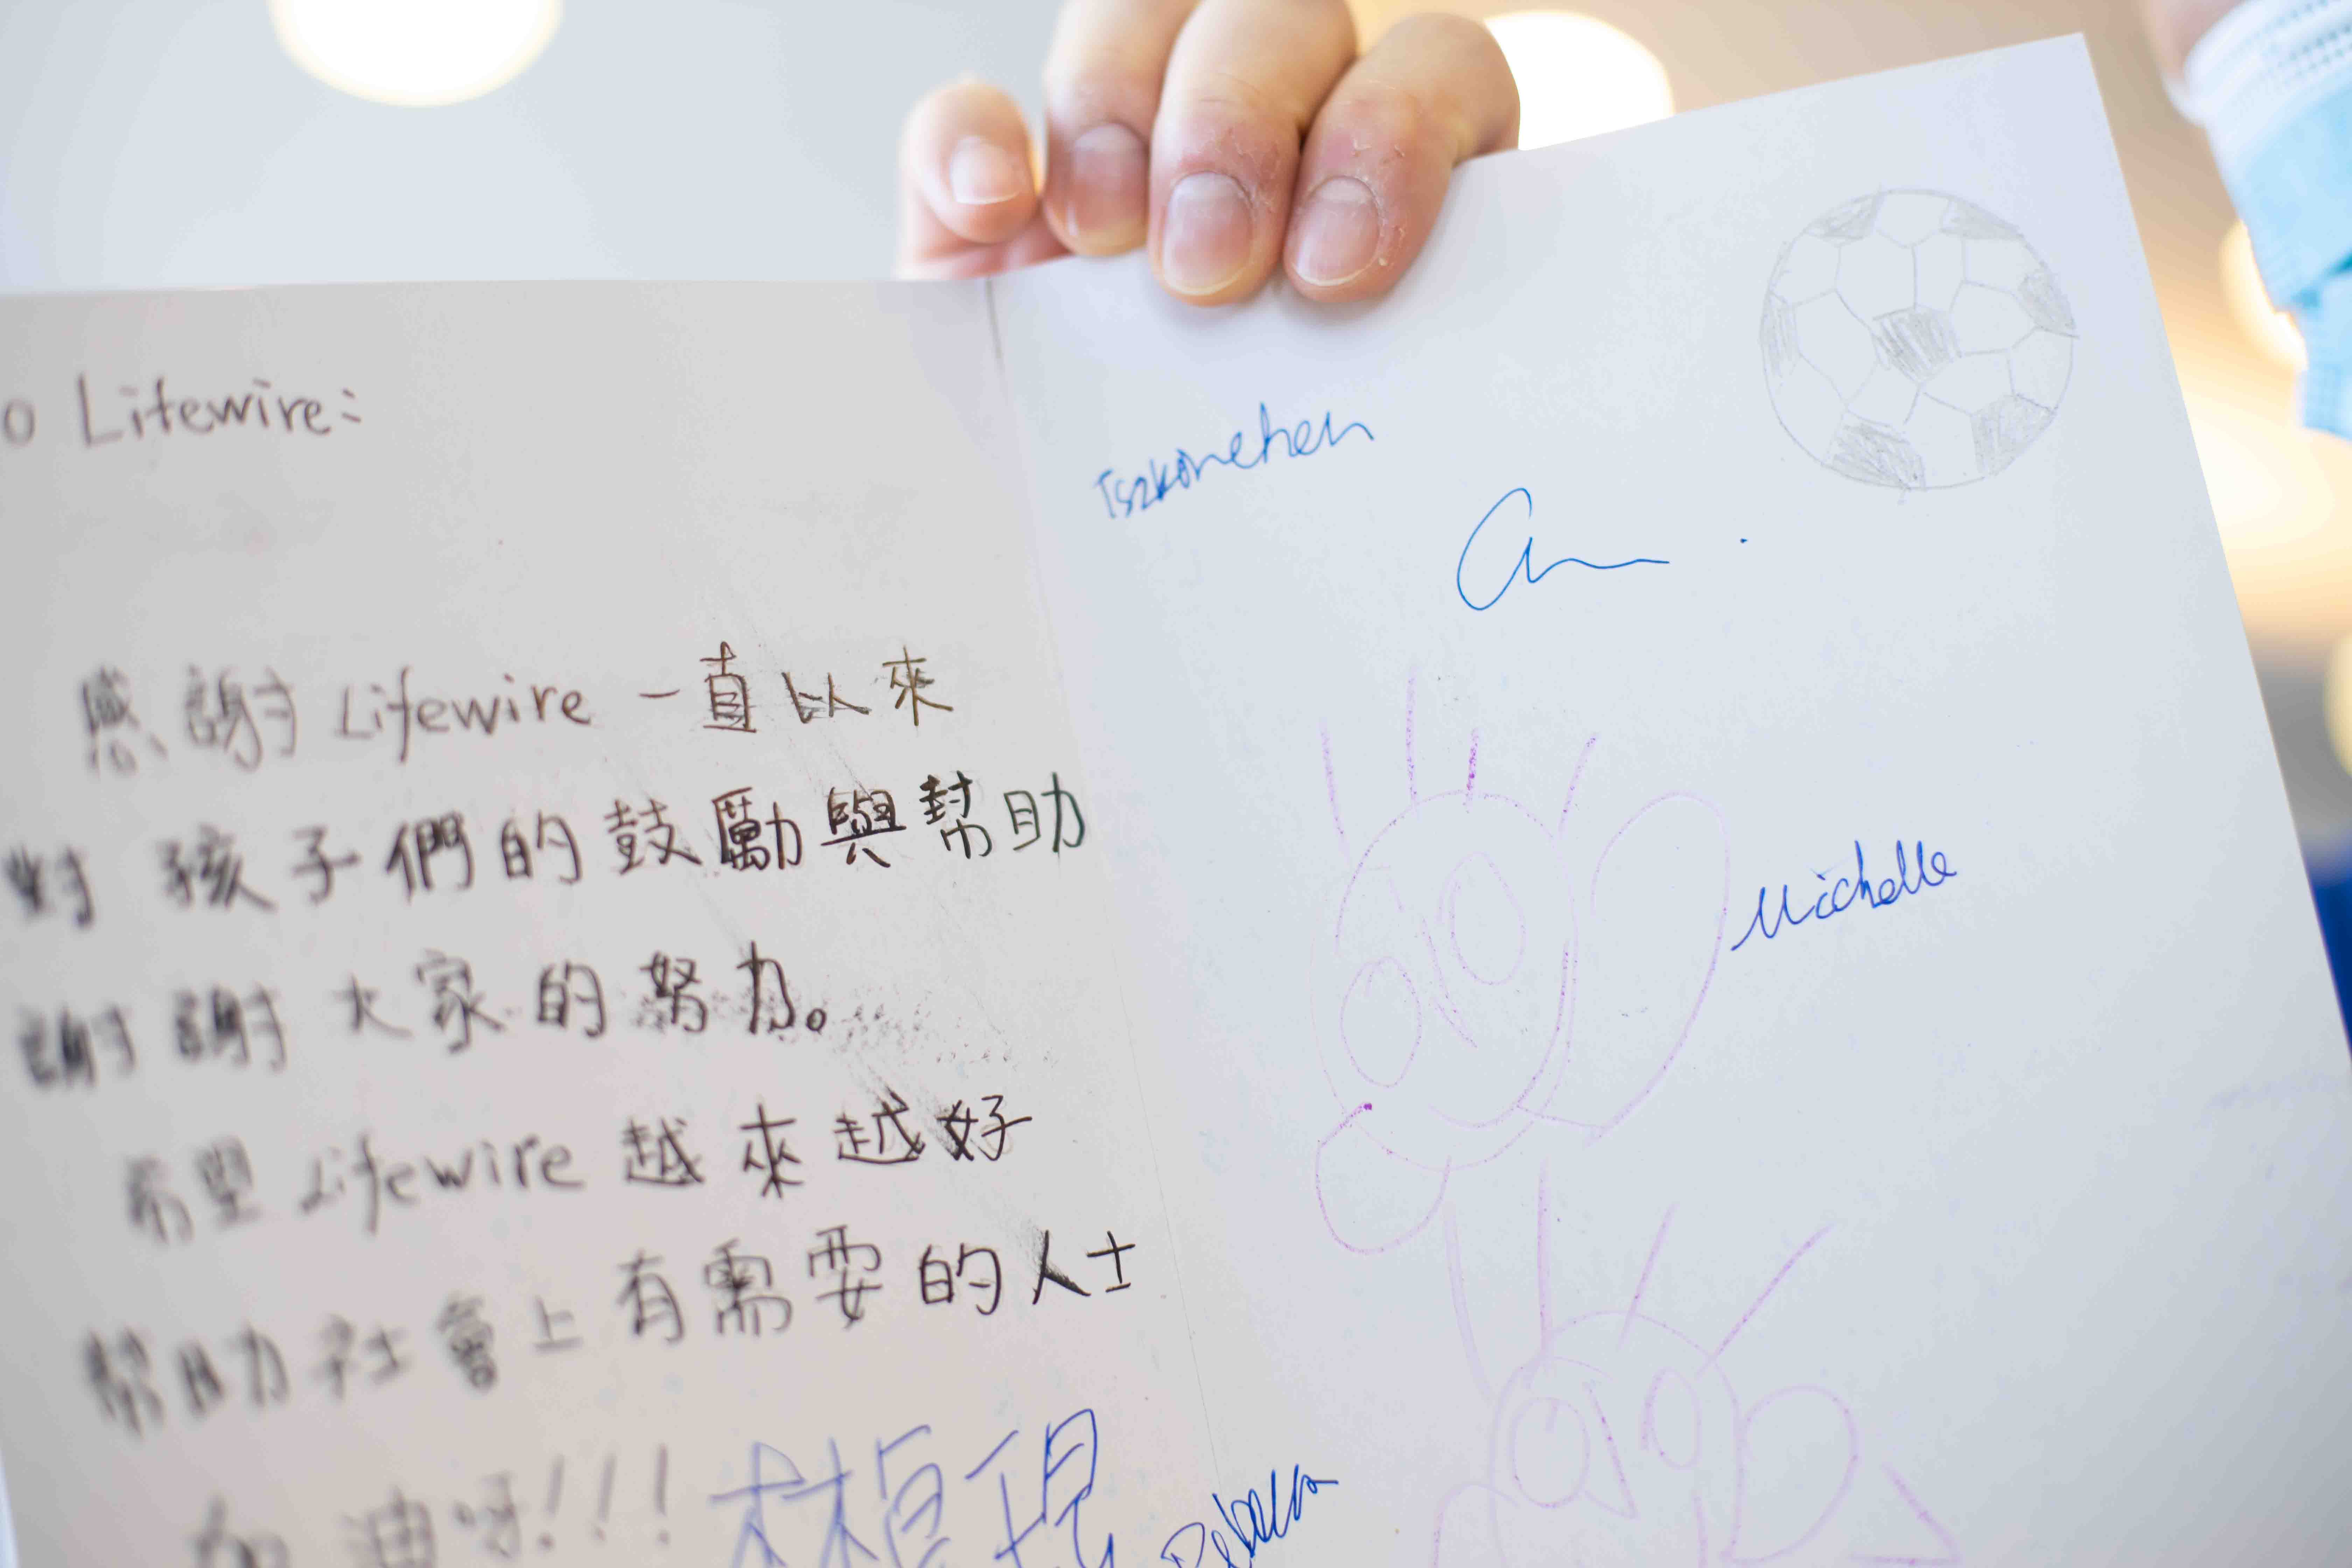 o Lifewire:
感謝 Lifewire 一直以來
對孩子們的鼓勵與幫助
謝謝大家的努力。
希望 Lifewire 越來越好
幫助社會上有需要的人士
加油呀!!!
Michelle
Rebecca